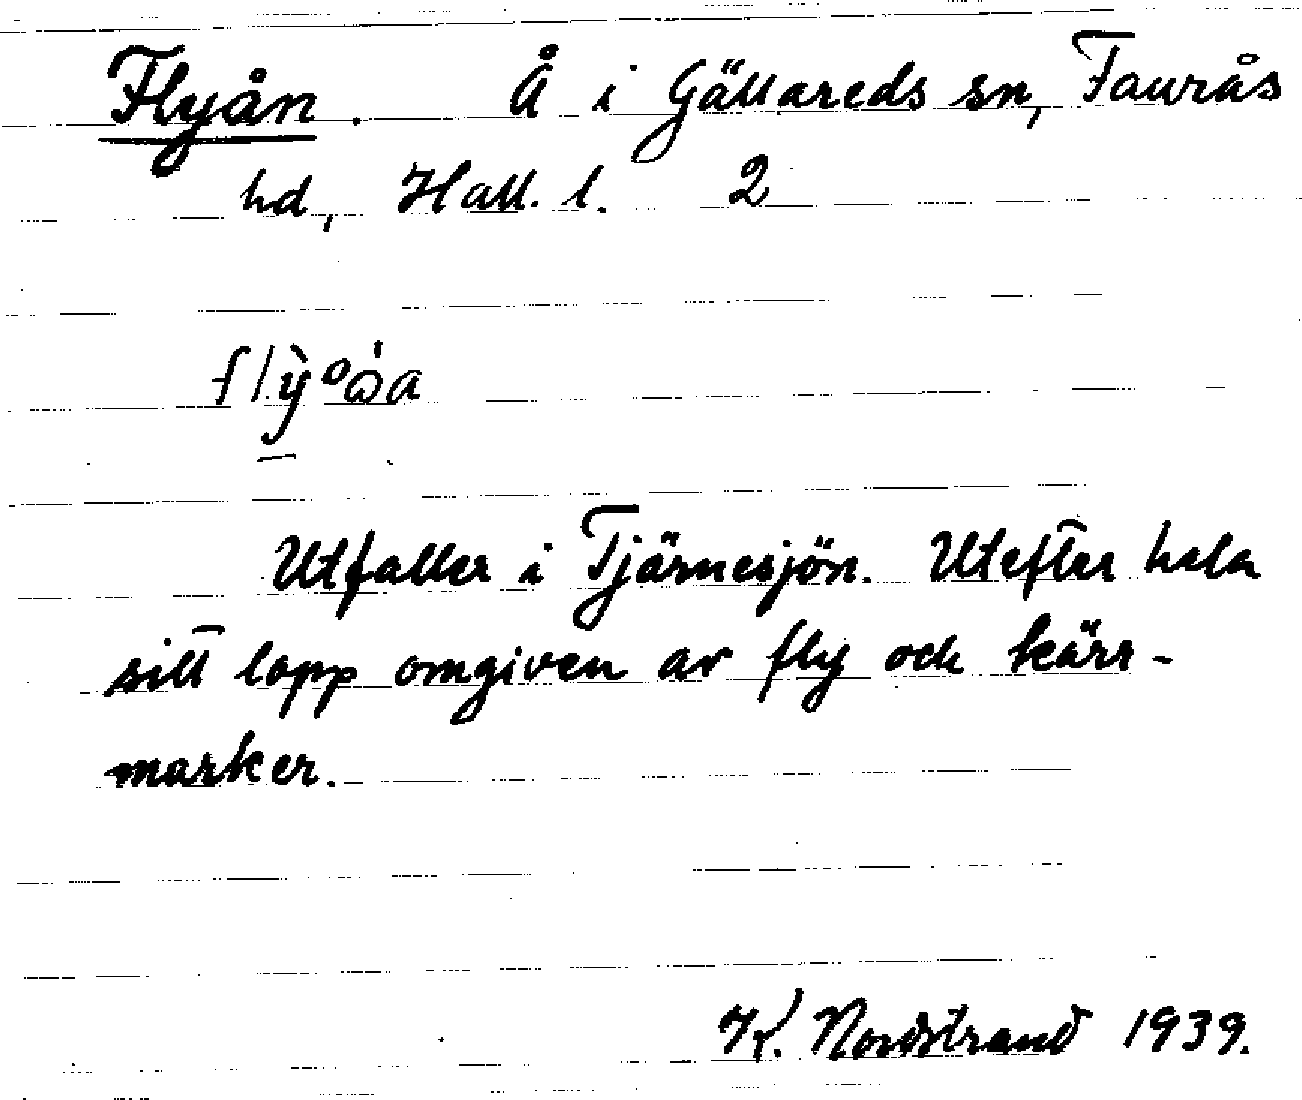 Flyån. Å i Gällareds sn, Faurås
hd, Hall. l. 2
Utfaller i Tjärnesjön. Utefter hela
sitt lopp omgiven av fly och kärr-
marker.
K. Nordstrand 1939.